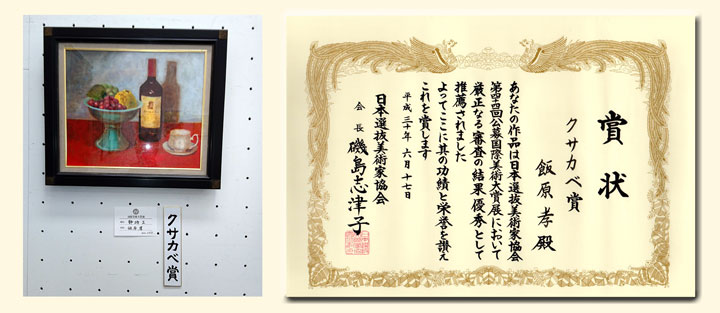 クサカベ賞
賞状
クサカベ賞
飯原孝殿
あなたの作品は日本選抜美術家協会
第四十四回公募国際美術大賞展において
厳正なる審査の結果優秀として
推薦されました
よってここに其の功績と栄誉を讃え
これを賞します
平成三十年六月十七日
日本選抜美術家協会
会長 磯島志津子